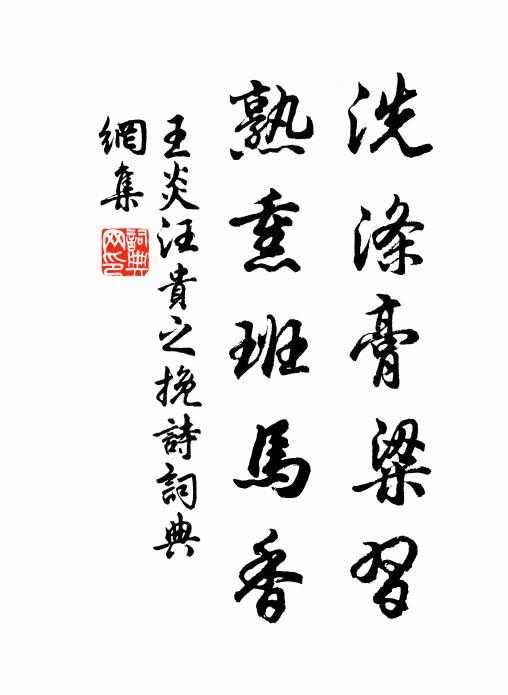 洗滌膏粱習
熟熏班馬香
王炎汪貴之挽詩詞典
網集
詞典
网印